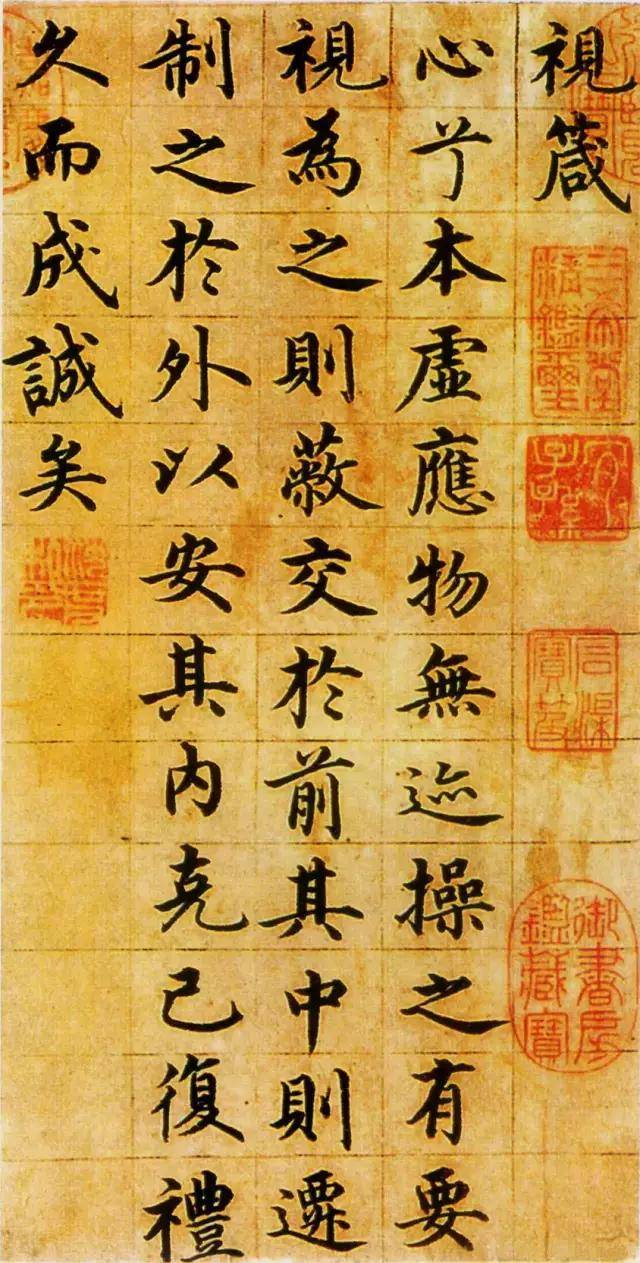 視箴
心兮本虛應物無迹操之有要
視為之則蔽交於前其中則遷
制之於外以安其内克己復禮
久而成誠矣
三希堂精鑑璽
宜子孫
御書房鑑藏寶